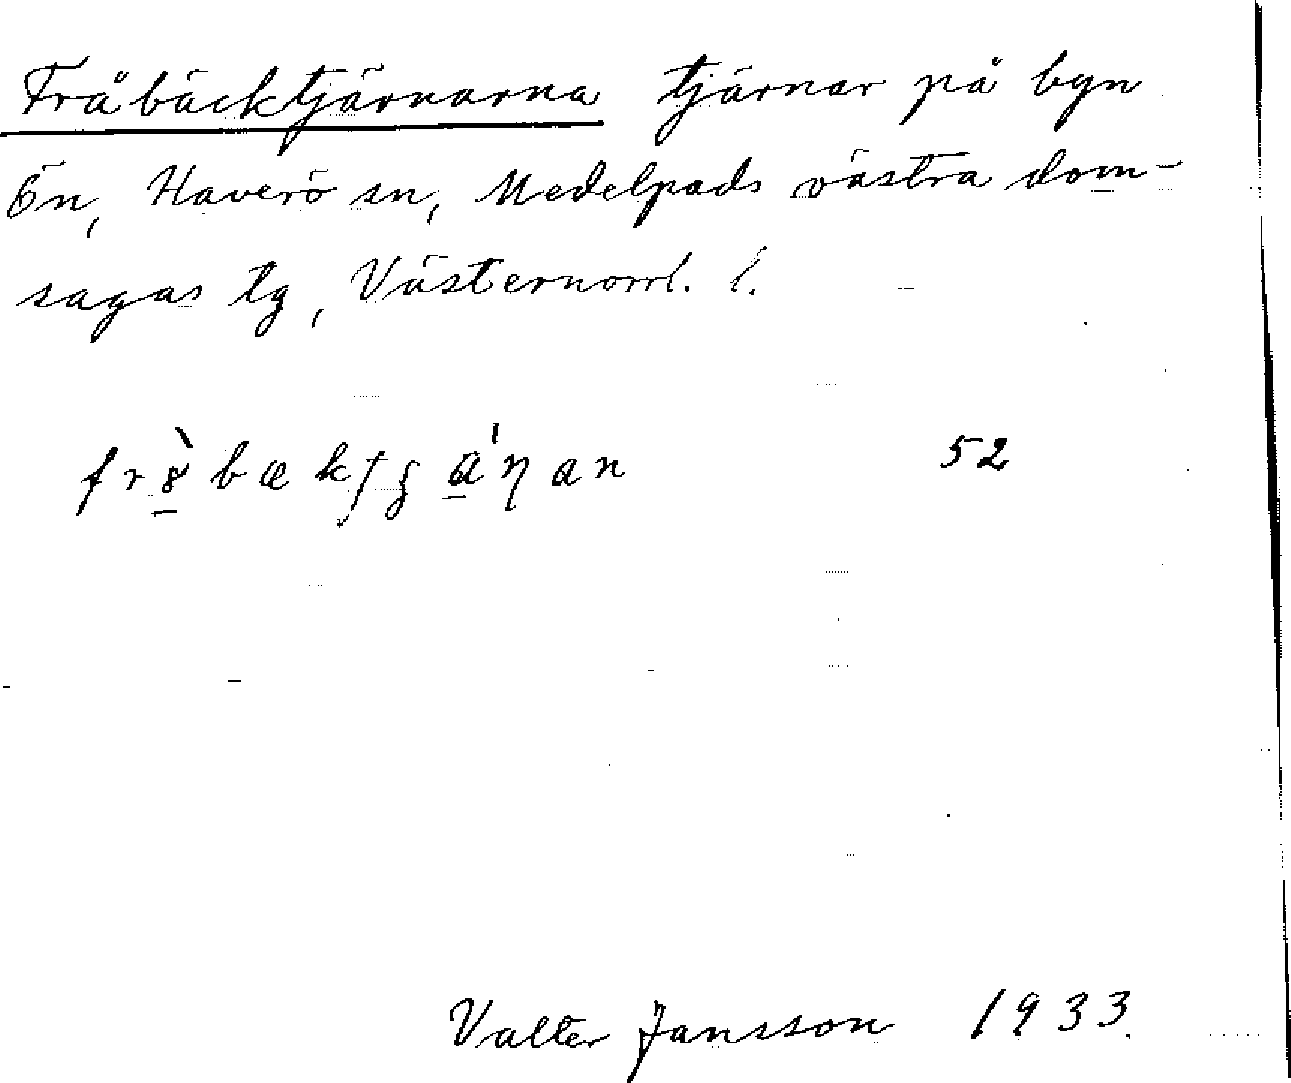 Fråbäcktjärnarna tjärnar på byn
Ön, Haverö sn, Medelpads västra dom-
sagas tg, Västernorrl. l.
52
Valter Jansson 1933.